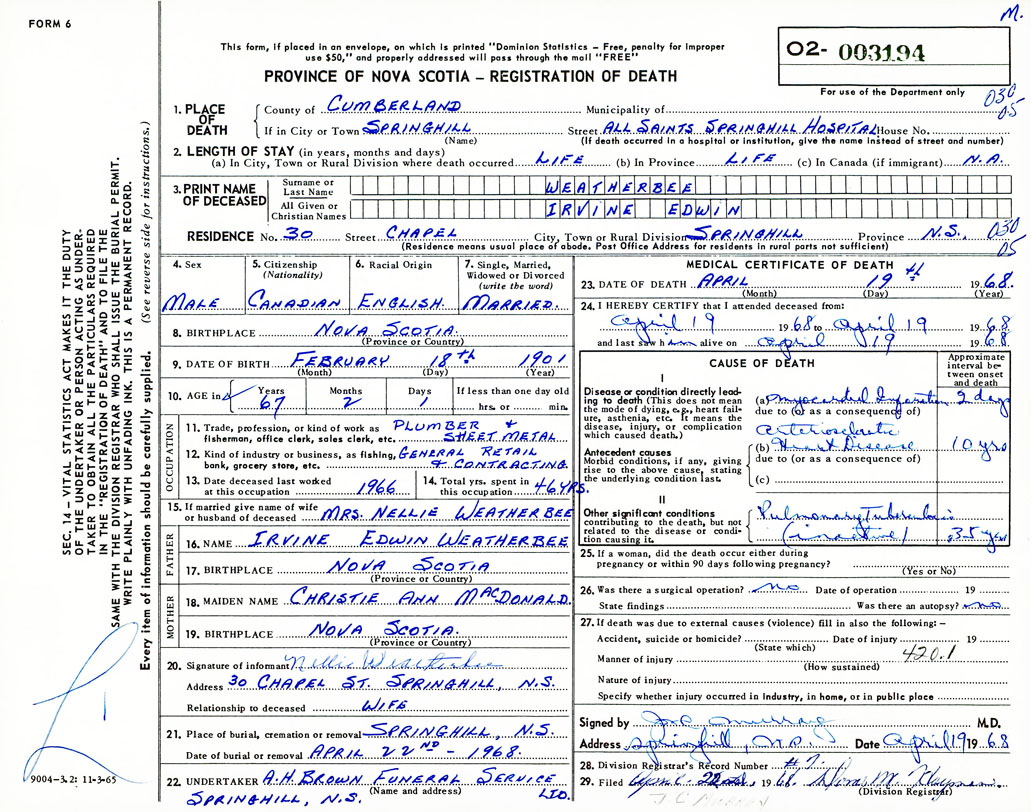 M.
FORM 6
This form, if placed in an envelope, on which is printed "Dominion Statistics – Free, penalty for improper
use $50," and properly addressed will pass through the mail "FREE"
O2- 003194
PROVINCE OF NOVA SCOTIA – REGISTRATION OF DEATH
For use of the Department only
030
05
1. PLACE OF DEATH
County of CUMBERLAND Municipality of
If in City or Town SPRINGHILL Street ALL SAINTS SPRINGHILL HOSPITAL House No.
(Name) (If death occurred in a hospital or institution, give the name instead of street and number)
2. LENGTH OF STAY (in years, months and days)
(a) In City, Town or Rural Division where death occurred LIFE (b) In Province LIFE (c) In Canada (if immigrant) N.A.
3. PRINT NAME OF DECEASED
Surname or Last Name WEATHERBEE
All Given or Christian Names IRVINE EDWIN
RESIDENCE No. 30 Street CHAPEL City, Town or Rural Division SPRINGHILL Province N.S. 030
05
(Residence means usual place of abode. Post Office Address for residents in rural parts not sufficient)
4. Sex
MALE
5. Citizenship
(Nationality)
CANADIAN
6. Racial Origin
ENGLISH.
7. Single, Married,
Widowed or Divorced
(write the word)
MARRIED.
8. BIRTHPLACE NOVA SCOTIA.
(Province or Country)
9. DATE OF BIRTH FEBRUARY 18th 1901
(Month) (Day) (Year)
10. AGE in Years Months Days If less than one day old
67 2 1 hrs. or min.
OCCUPATION
11. Trade, profession, or kind of work as PLUMBER &
fisherman, office clerk, sales clerk, etc. SHEET METAL
12. Kind of industry or business, as fishing, GENERAL RETAIL
bank, grocery store, etc. & CONTRACTING.
13. Date deceased last worked
at this occupation 1966
14. Total yrs. spent in
this occupation 46 YRS.
15. If married give name of wife
or husband of deceased MRS. NELLIE WEATHERBEE
FATHER
16. NAME IRVINE EDWIN WEATHERBEE
17. BIRTHPLACE NOVA SCOTIA
(Province or Country)
MOTHER
18. MAIDEN NAME CHRISTIE ANN MACDONALD.
19. BIRTHPLACE NOVA SCOTIA.
(Province or Country)
20. Signature of informant Nellie Weatherbee
Address 30 CHAPEL ST. SPRINGHILL, N.S.
Relationship to deceased WIFE
21. Place of burial, cremation or removal SPRINGHILL, N.S.
Date of burial or removal APRIL 22ND - 1968.
22. UNDERTAKER A.H. BROWN FUNERAL SERVICE LTD.
(Name and address)
SPRINGHILL, N.S.
MEDICAL CERTIFICATE OF DEATH
23. DATE OF DEATH APRIL 19th 1968.
(Month) (Day) (Year)
24. I HEREBY CERTIFY that I attended deceased from:
April 19 1968 to April 19 1968
and last saw him alive on April 19 1968.
CAUSE OF DEATH
Approximate
interval be-
tween onset
and death
I
Disease or condition directly lead-
ing to death (This does not mean
the mode of dying, e.g., heart fail-
ure, asthenia, etc. It means the
disease, injury, or complication
which caused death.)
(a) Myocardial Infarction 2 days
due to (or as a consequence of)
Arteriosclerotic
(b) Heart Disease 10 yrs
due to (or as a consequence of)
(c)
Antecedent causes
Morbid conditions, if any, giving
rise to the above cause, stating
the underlying condition last.
II
Other significant conditions
contributing to the death, but not
related to the disease or condi-
tion causing it.
Pulmonary Tuberculosis
(inactive) 35 years
25. If a woman, did the death occur either during
pregnancy or within 90 days following pregnancy?
(Yes or No)
26. Was there a surgical operation? no Date of operation 19
State findings Was there an autopsy? no
27. If death was due to external causes (violence) fill in also the following: –
Accident, suicide or homicide? Date of injury 19
(State which)
Manner of injury 420.1
(How sustained)
Nature of injury
Specify whether injury occurred in Industry, in home, or in public place
Signed by Murray M.D.
Address Springhill, N.S. Date April 19 1968
28. Division Registrar's Record Number #7.
29. Filed April 22nd, 1968
(Division Registrar)
SEC. 14 – VITAL STATISTICS ACT MAKES IT THE DUTY
OF THE UNDERTAKER OR PERSON ACTING AS UNDER-
TAKER TO OBTAIN ALL THE PARTICULARS REQUIRED
IN THE "REGISTRATION OF DEATH" AND TO FILE THE
SAME WITH THE DIVISION REGISTRAR WHO SHALL ISSUE THE BURIAL PERMIT.
WRITE PLAINLY WITH UNFADING INK. THIS IS A PERMANENT RECORD.
Every item of information should be carefully supplied. (See reverse side for instructions.)
9004–3.2: 11-3-65